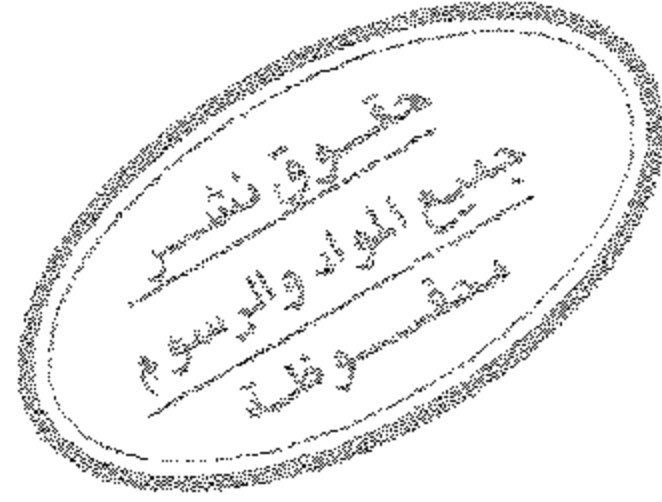 حقوق نشر
جميع المواد والرسوم
محفوظة